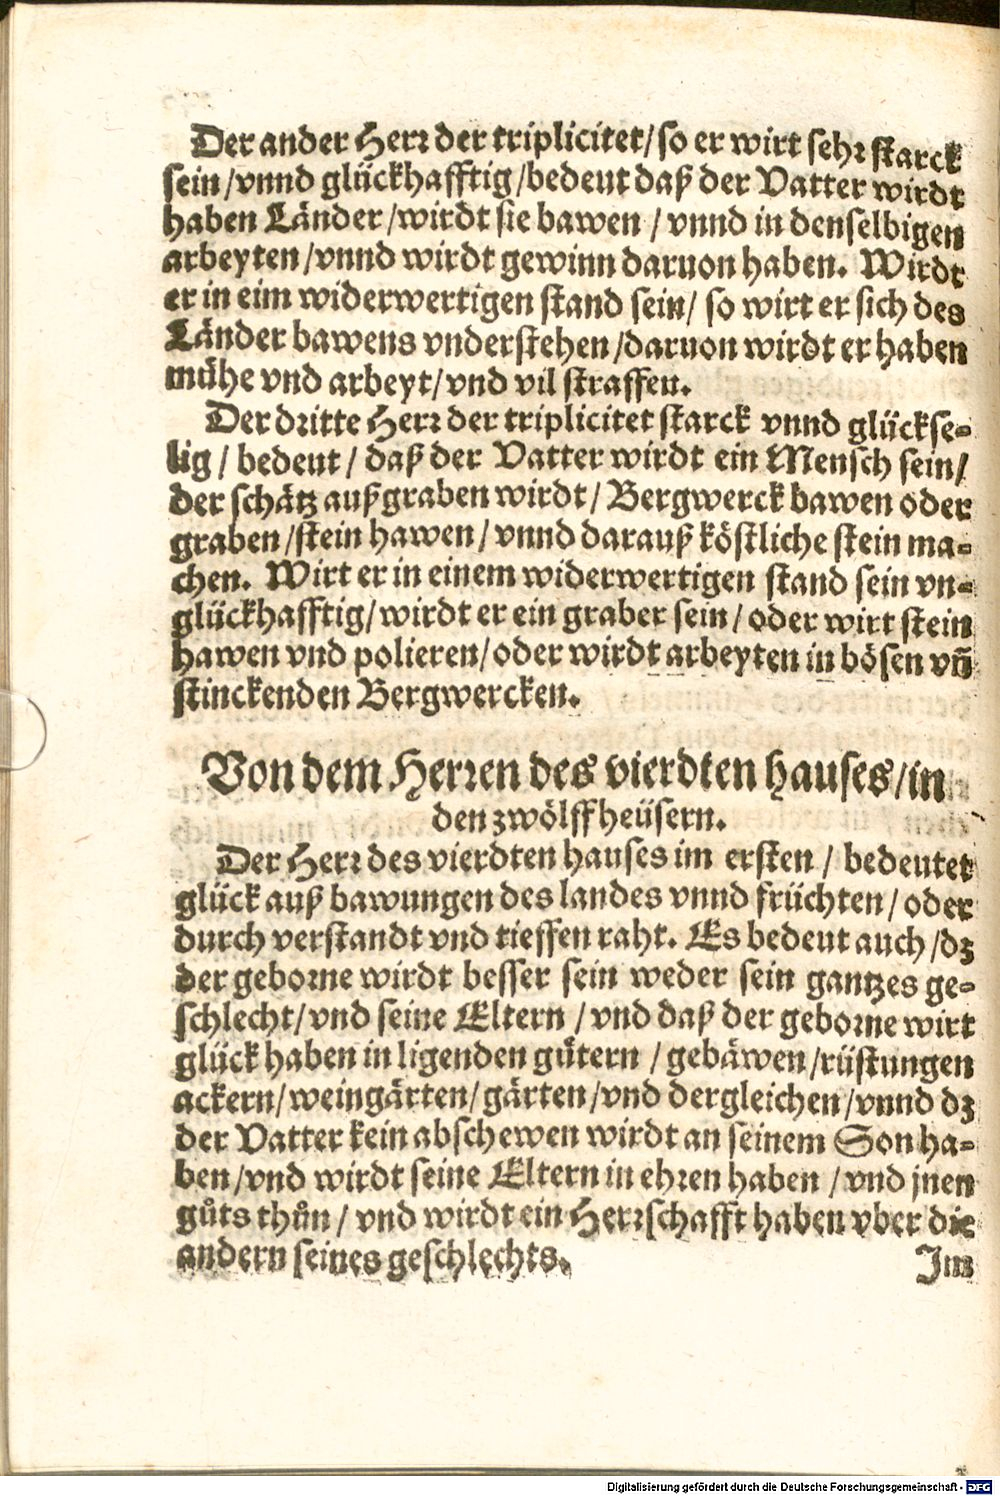 Der ander Herr der triplicitet/so er wirt sehr starck
sein/vnnd glückhafftig/bedeut daß der Vatter wirdt
haben Länder/wirdt sie bawen / vnnd in denselbigen
arbeyten/vnnd wirdt gewinn daruon haben. Wirdt
er in eim widerwertigen stand sein/ so wirt er sich des
Länder bawens vnderstehen/daruon wirdt er haben
mühe vnd arbeyt/vnd vil straffen.
Der dritte Herr der triplicitet starck vnnd glückse-
lig / bedeut / daß der Vatter wirdt ein Mensch sein/
der schätz außgraben wirdt / Bergwerck bawen oder
graben /stein hawen / vnnd darauß köstliche stein ma-
chen. Wirt er in einem widerwertigen stand sein vn-
glückhafftig/wirdt er ein graber sein / oder wirt stein
hawen vnd polieren/oder wirdt arbeyten in bösen vñ
stinckenden Bergwercken.
Von dem Herren des vierdten hauses/in
den zwölff heüsern.
Der Herr des vierdten hauses im ersten / bedeutet
glück auß bawungen des landes vnnd früchten / oder
durch verstandt vnd tieffen raht. Es bedeut auch /dz
der geborne wirdt besser sein weder sein gantzes ge-
schlecht/vnd seine Eltern / vnd daß der geborne wirt
glück haben in ligenden gůtern / gebäwen/rüstungen
ackern/weingärten/gärten/vnd dergleichen/vnnd dz
der Vatter kein abschewen wirdt an seinem Son ha-
ben /vnd wirdt seine Eltern in ehren haben / vnd jnen
gůts thůn / vnd wirdt ein Herrschafft haben vber die
andern seines geschlechts. Im
Digitalisierung gefördert durch die Deutsche Forschungsgemeinschaft - DFG